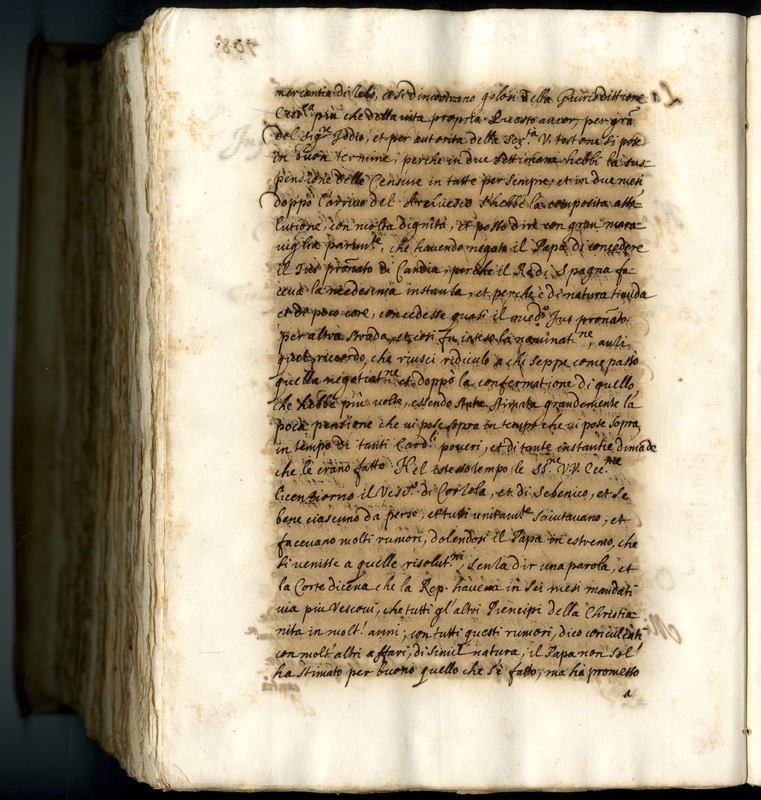 mercantia di lebi, et si dimostrano gelosi della Giurisditione
Ces.ª più che della vita propria. Questo ancor, per gra
del Sig.r Iddio, et per autorità della Ser.tà V. tosto ne si pose
in buon termine, perche in due settimane hebbi la sus=
pensione delle Censure in tutte per sempre, et in due mesi
doppò l'arrivo del s'hebbe la composita asso=
lutione, con molta dignità, et posso dire con gran mara=
viglia parim.te, che havendo negato il Papa di concedere
il Jus pronato di Candia, perche il Re di Spagna fa=
ceva la medesima instantia, et perche è di natura timida
et di poco core, concedesse quasi il med.o Jus pronato
per altra strada, et così fu intesa la nominat.ne,
quel ricordo, che riuscì ridiculo a chi seppe come passò
quella negotiat.ne et doppò la confermatione di quello
che hebbe più volte, essendo stata stimata grandemente la
poca pensione che vi pose sopra in tempo che vi pose sopra,
in tempo di tanti Card.li poveri, et di tante instantie dimãde
che le erano fatte. Nel istesso tempo le SS.rie VV. Ecc.me
licenziorno il Vesc.o di Corzola, et di Sebenico, et se
bene ciascuno da perse, et tutti unitam.te aiutavano, et
facevano molti rumori, dolendosi il Papa in estremo, che
si venisse a quelle risolut.ni, senza dir una parola, et
la Corte diceva che la Rep. haveva in sei mesi mandati
via più Vescovi, che tutti gl'altri Prencipi della Christia=
nità in molt' anni; con tutti questi rumori, dico
con molt'altri affari, di simil natura, il Papa non sol'
ha stimato per buono quello che s'è fatto, mà ha promesso
a